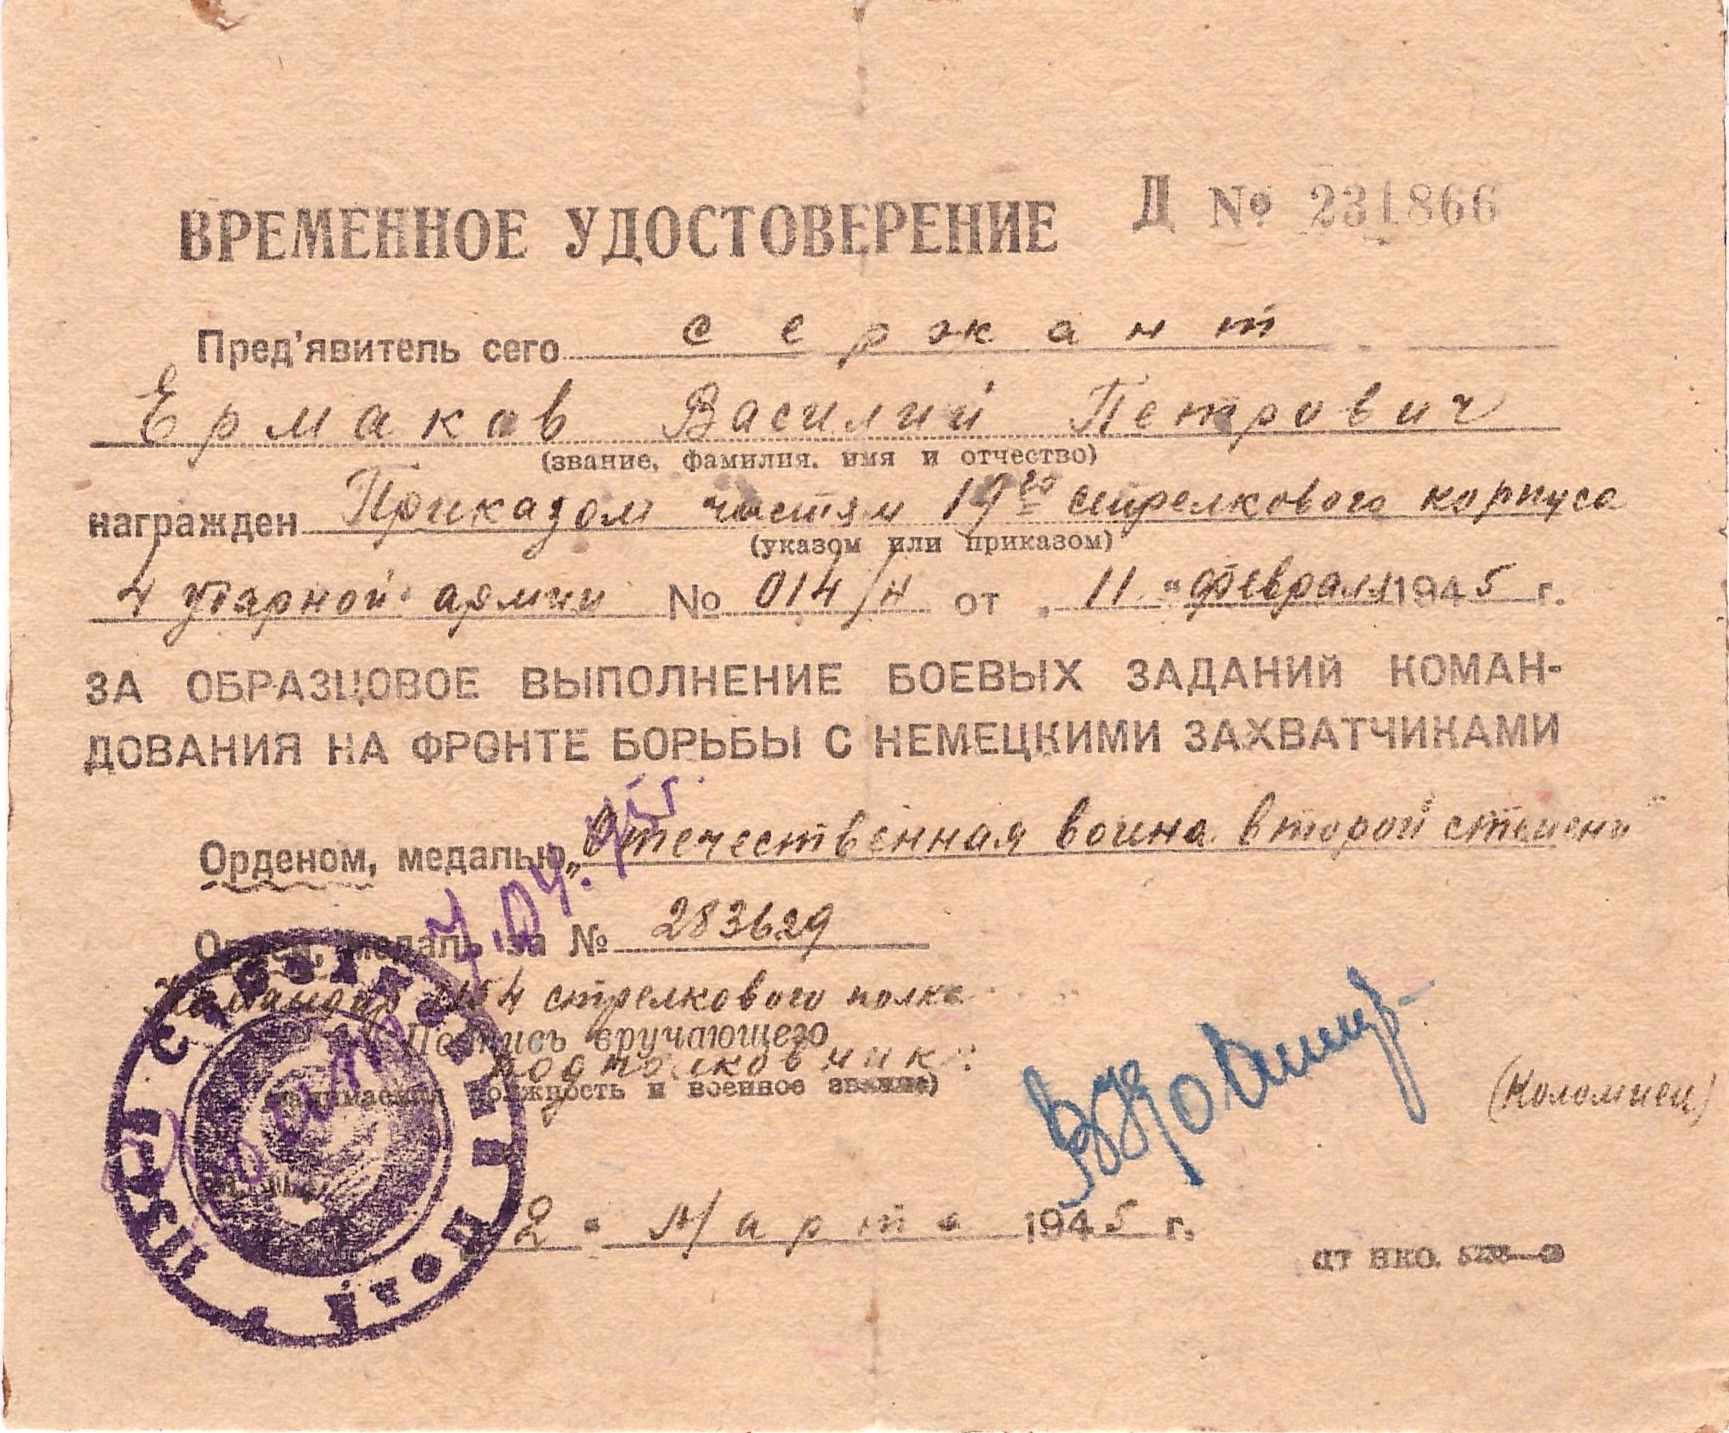 ВРЕМЕННОЕ УДОСТОВЕРЕНИЕ Д № 231866
Пред'явитель сего сержант
Ермаков Василий Петрович
(звание, фамилия, имя и отчество)
награжден Приказом частям 19го стрелкового корпуса
(указом или приказом)
4 ударной армии № 014/н от "11" февраля 1945 г.
ЗА ОБРАЗЦОВОЕ ВЫПОЛНЕНИЕ БОЕВЫХ ЗАДАНИЙ КОМАН-
ДОВАНИЯ НА ФРОНТЕ БОРЬБЫ С НЕМЕЦКИМИ ЗАХВАТЧИКАМИ
Орденом, медалью „Отечественная война второй степени"
Орден, медаль за № 283629
Командир стрелкового полка
Подпись вручающего
подполковник:
(занимаемая должность и военное звание)
(Коломиец)
2 " Марта 1945 г.
НКО.
7.04.95г.